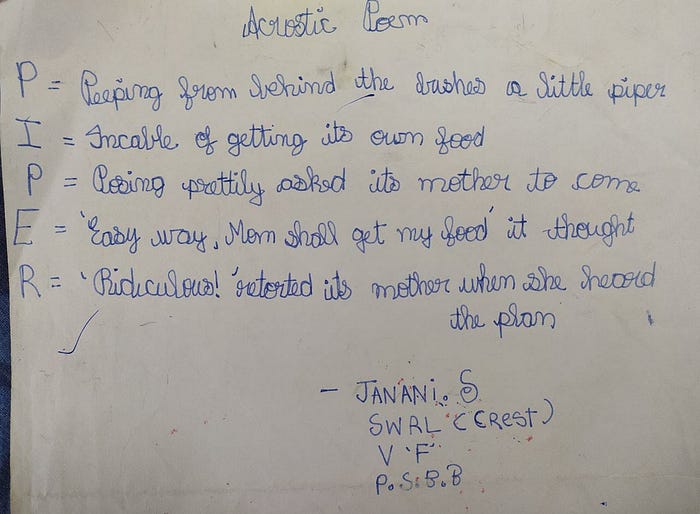 Acrostic Poem
P = Peeping from behind the bushes a little piper
I = Incable of getting its own food
P = Posing prettily asked its mother to come
E = 'Easy way, Mom shall get my food' it thought
R = 'Ridiculous!' retorted its mother when she heard
the plan
- JANANI. S
SWRL (CREST)
V 'F'
P.S.B.B